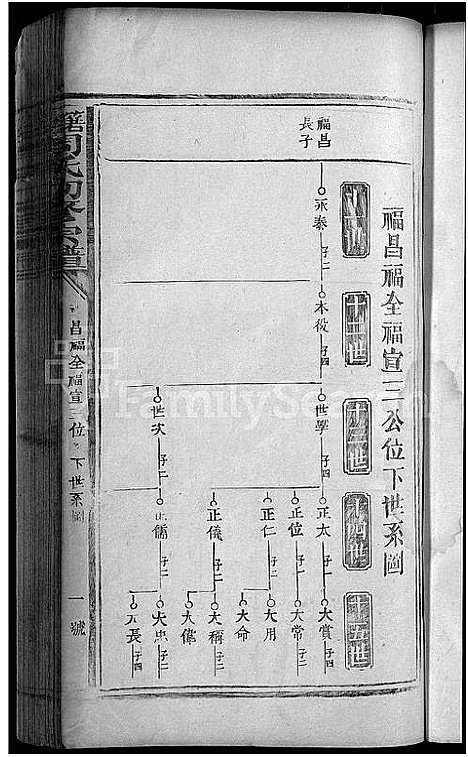 福昌福全福宣三公位下世系圖
十二世
十三世
十四世
十五世
福昌
長子
永泰 子二
本役 子四
世學 子四
世次 子二
正太 子二
正位 子一
正仁 子二
正儀 子二
正儒 子二
大賞 子四
大常 子二
大用
大命
大稱 子二
大偉
大忠 子二
大長 子四
昌福全福宣三位下世系圖
一號
FamilySearch